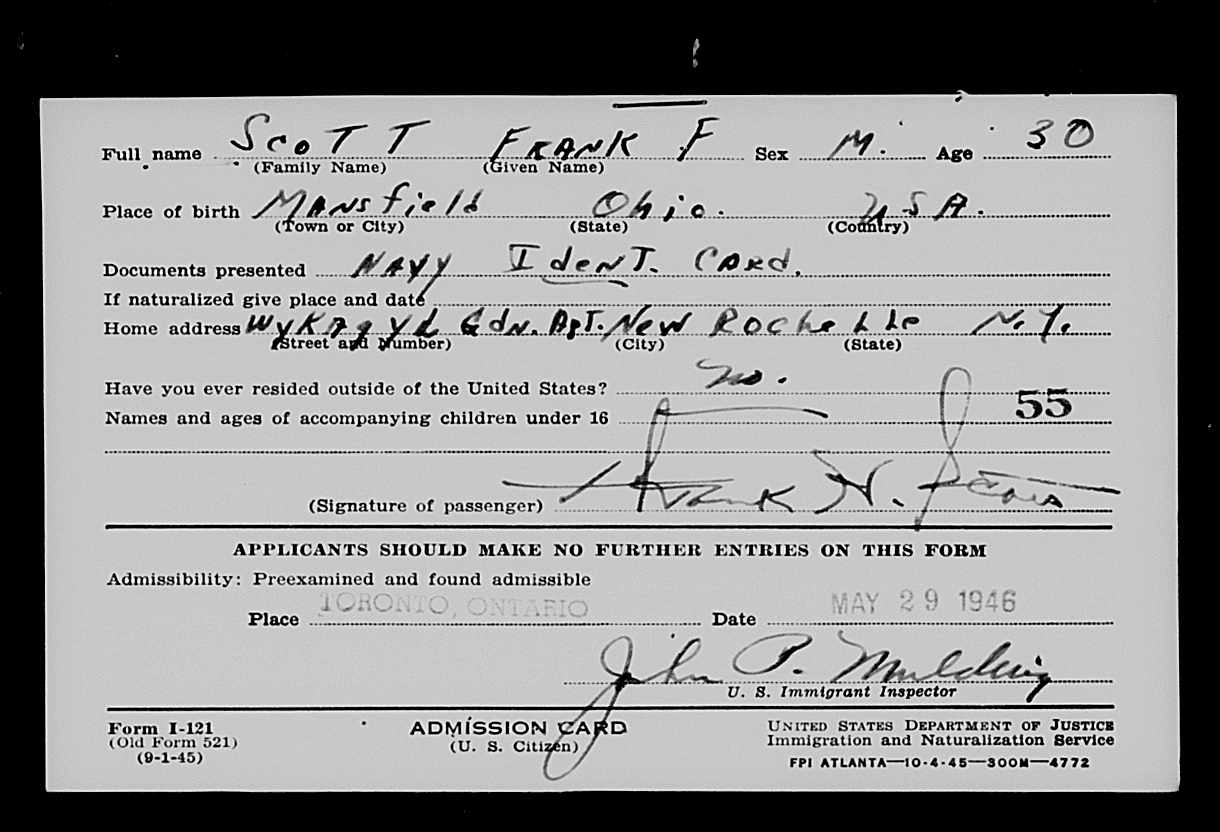 Full name Scott Frank F Sex M. Age 30
(Family Name) (Given Name)
Place of birth Mansfield Ohio. USA.
(Town or City) (State) (Country)
Documents presented Navy Ident. Card.
If naturalized give place and date
Home address Wykagyl Gdn. Apt. New Rochelle N.Y.
(Street and Number) (City) (State)
Have you ever resided outside of the United States? no.
Names and ages of accompanying children under 16 55
(Signature of passenger) Frank
APPLICANTS SHOULD MAKE NO FURTHER ENTRIES ON THIS FORM
Admissibility: Preexamined and found admissible
Place TORONTO, ONTARIO Date MAY 29 1946
John P.
U. S. Immigrant Inspector
Form I-121 ADMISSION CARD UNITED STATES DEPARTMENT OF JUSTICE
(Old Form 521) (U. S. Citizen) Immigration and Naturalization Service
(9-1-45) FPI ATLANTA—10-4-45—300M—4772